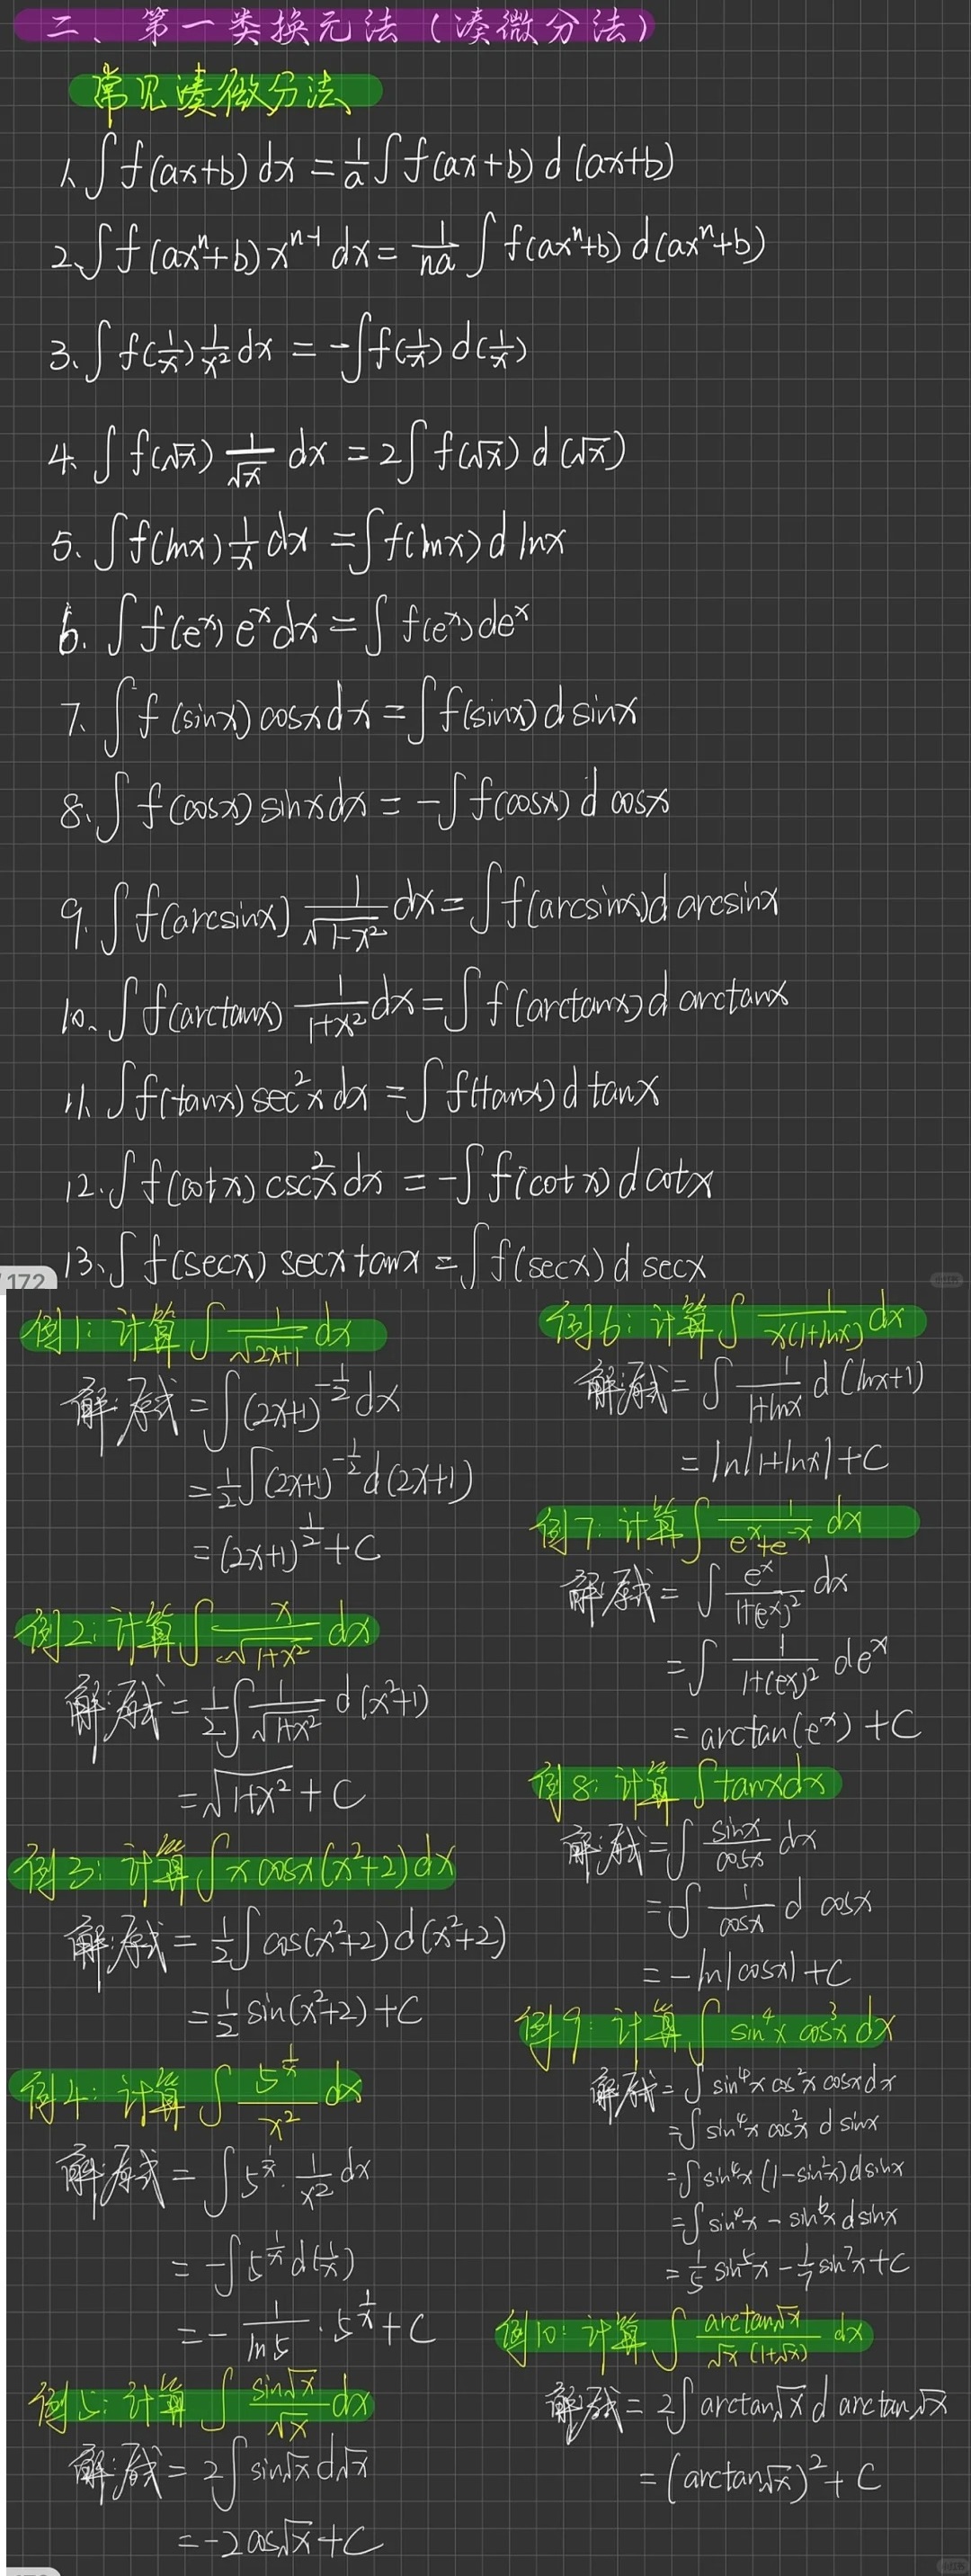 二、第一类换元法（凑微分法）
常见凑微分法
1、∫f(ax+b)dx = 1/a ∫f(ax+b)d(ax+b)
2、∫f(axⁿ+b)xⁿ⁻¹dx = 1/(na) ∫f(axⁿ+b)d(axⁿ+b)
3、∫f(1/x) 1/x² dx = -∫f(1/x)d(1/x)
4、∫f(√x) 1/√x dx = 2∫f(√x)d(√x)
5、∫f(lnx) 1/x dx = ∫f(lnx)d lnx
6、∫f(eˣ)eˣdx = ∫f(eˣ)deˣ
7、∫f(sinx)cosxdx = ∫f(sinx)d sinx
8、∫f(cosx)sinxdx = -∫f(cosx)d cosx
9、∫f(arcsinx) 1/√(1-x²) dx = ∫f(arcsinx)d arcsinx
10、∫f(arctanx) 1/(1+x²) dx = ∫f(arctanx)d arctanx
11、∫f(tanx)sec²xdx = ∫f(tanx)d tanx
12、∫f(cotx)csc²xdx = -∫f(cotx)d cotx
13、∫f(secx)secxtanx = ∫f(secx)d secx
172
例1：计算∫ 1/√(2x+1) dx
解：原式 = ∫(2x+1)^(-1/2)dx
= 1/2 ∫(2x+1)^(-1/2)d(2x+1)
= (2x+1)^(1/2)+C
例2：计算∫ x/√(1+x²) dx
解：原式 = 1/2 ∫ 1/√(1+x²) d(x²+1)
= √(1+x²)+C
例3：计算∫xcosx(x²+2)dx
解：原式 = 1/2 ∫cos(x²+2)d(x²+2)
= 1/2 sin(x²+2)+C
例4：计算∫ 5^(1/x)/x² dx
解：原式 = ∫5^(1/x)·1/x² dx
= -∫5^(1/x)d(1/x)
= -1/ln5·5^(1/x)+C
例5：计算∫ sin√x/√x dx
解：原式 = 2∫sin√xd√x
= -2cos√x+C
例6：计算∫ 1/(x(1+lnx)) dx
解：原式 = ∫ 1/(1+lnx) d(lnx+1)
= ln|1+lnx|+C
例7：计算∫ 1/(eˣ+e⁻ˣ) dx
解：原式 = ∫ eˣ/(1+(eˣ)²) dx
= ∫ 1/(1+(eˣ)²) deˣ
= arctan(eˣ)+C
例8：计算∫tanxdx
解：原式 = ∫ sinx/cosx dx
= -∫ 1/cosx d cosx
= -ln|cosx|+C
例9：计算∫sin⁴x cos³x dx
解：原式 = ∫sin⁴x cos²x cosxdx
= ∫sin⁴x cos²x d sinx
= ∫sin⁴x(1-sin²x)dsinx
= ∫sin⁴x - sin⁶x dsinx
= 1/5 sin⁵x - 1/7 sin⁷x+C
例10：计算∫ arctan√x/(√x(1+√x)) dx
解：原式 = 2∫arctan√x d arctan√x
= (arctan√x)²+C